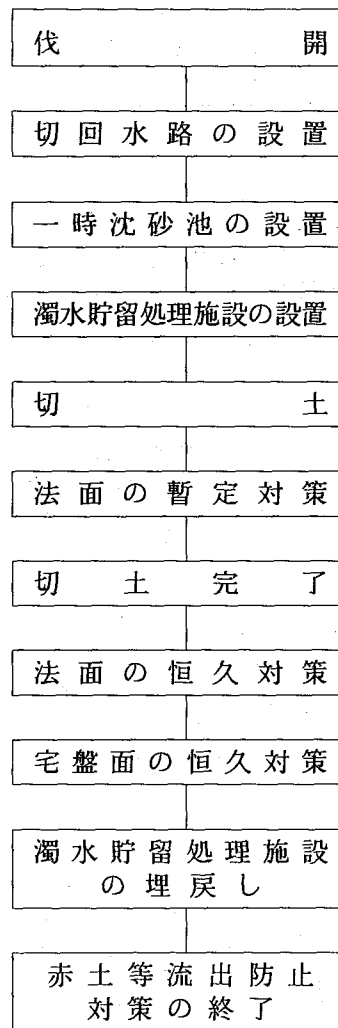 伐開
切回水路の設置
一時沈砂池の設置
濁水貯留処理施設の設置
切土
法面の暫定対策
切土完了
法面の恒久対策
宅盤面の恒久対策
濁水貯留処理施設
の埋戻し
赤土等流出防止
対策の終了